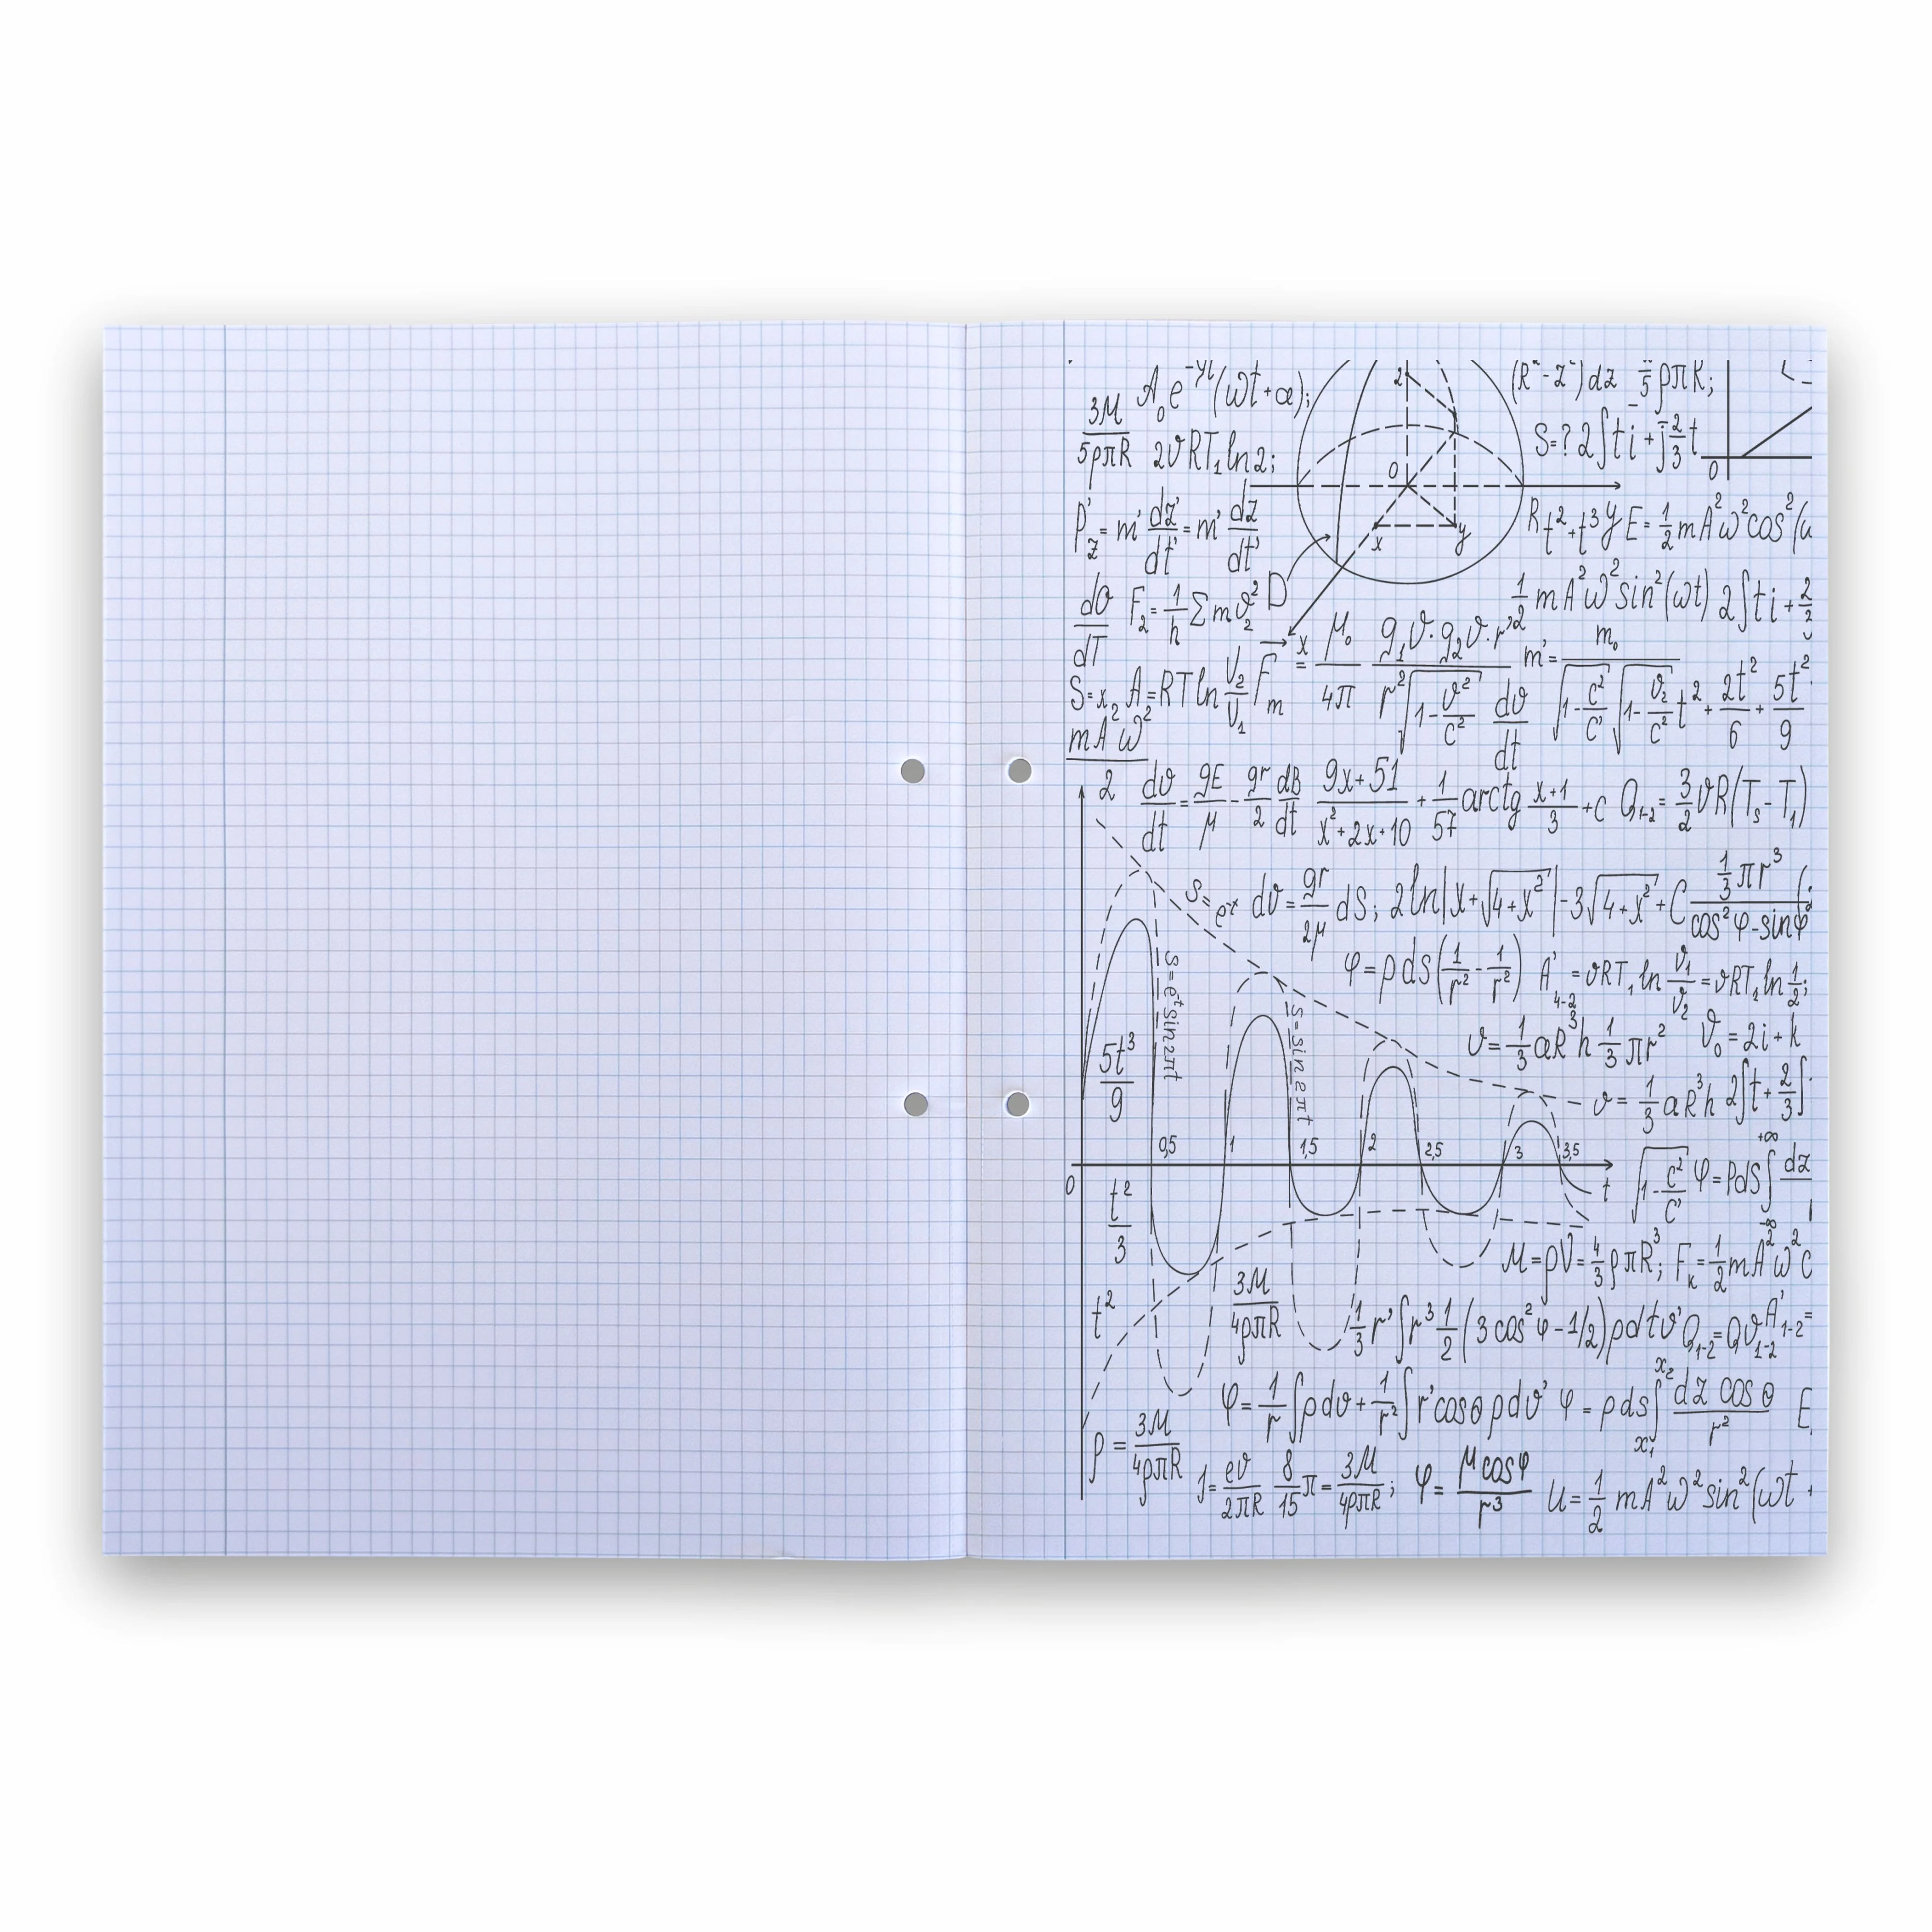 A₀e^-γt(ωt+α); (R²-z²)dz 5 ρπK;
3M/5ρπR 2ϑRT₁ln2; z S=? 2∫ti+j 2/3 t
0 0
P'z=m' dz'/dt'=m' dz/dt' x y Rt²+t³y E=1/2 mA²ω²cos²(
dϑ/dT F₂=1/h Σmϑ₂² D 1/2 mA²ω²sin²(ωt) 2∫ti+2/3
S=x₂ A=RTln V₂/V₁ Fm x = μ₀/4π g₁ϑ·g₂ϑ·r'/r²√1-ϑ²/c² dϑ/dt m'=m₀/√1-c²/c' √1-ϑ₂/c² t²+2t²/6+5t²/9
mA²ω²/2 dϑ/dt=gE/μ-gr/2 dB/dt 9x+51/x²+2x+10+1/57 arctg x+1/3+c Q₁₋₂=3/2 ϑR(Ts-T₁)
S=e^-x dϑ=gr/2μ dS; 2ln|x+√4+x²|-3√4+x²+C 1/3 πr³/cos²φ-sinφ
S=e^-t sin2πt φ=ρdS(1/r²-1/r²) A'₄₋₂=ϑRT₁ln ϑ₁/ϑ₂=ϑRT₁ln 1/2;
5t³/9 S=sin2πt ϑ=1/3 aR³h 1/3 πr² ϑ₀=2i+k
ϑ=1/3 aR³h 2∫t+2/3∫
0,5 1 1,5 2 2,5 3 3,5
0 t √1-c²/c' φ=PdS∫-∞+∞ dz
t²/3 M=ρV=4/3 ρπR³; Fк=1/2 mA²ω²c
t² 3M/4ρπR 1/3 r'∫r³ 1/2(3cos²φ-1/2)ρdtϑ' Q₁₋₂=Qϑ₁₋₂ A'₁₋₂=
φ=1/r∫ρdϑ+1/r²∫r'cosθρdϑ' φ=ρds∫x₁x₂ dz cosθ/r² E
ρ=3M/4ρπR J=eϑ/2πR 8/15 π=3M/4ρπR; φ=μcosφ/r³ U=1/2 mA²ω²sin²(ωt+